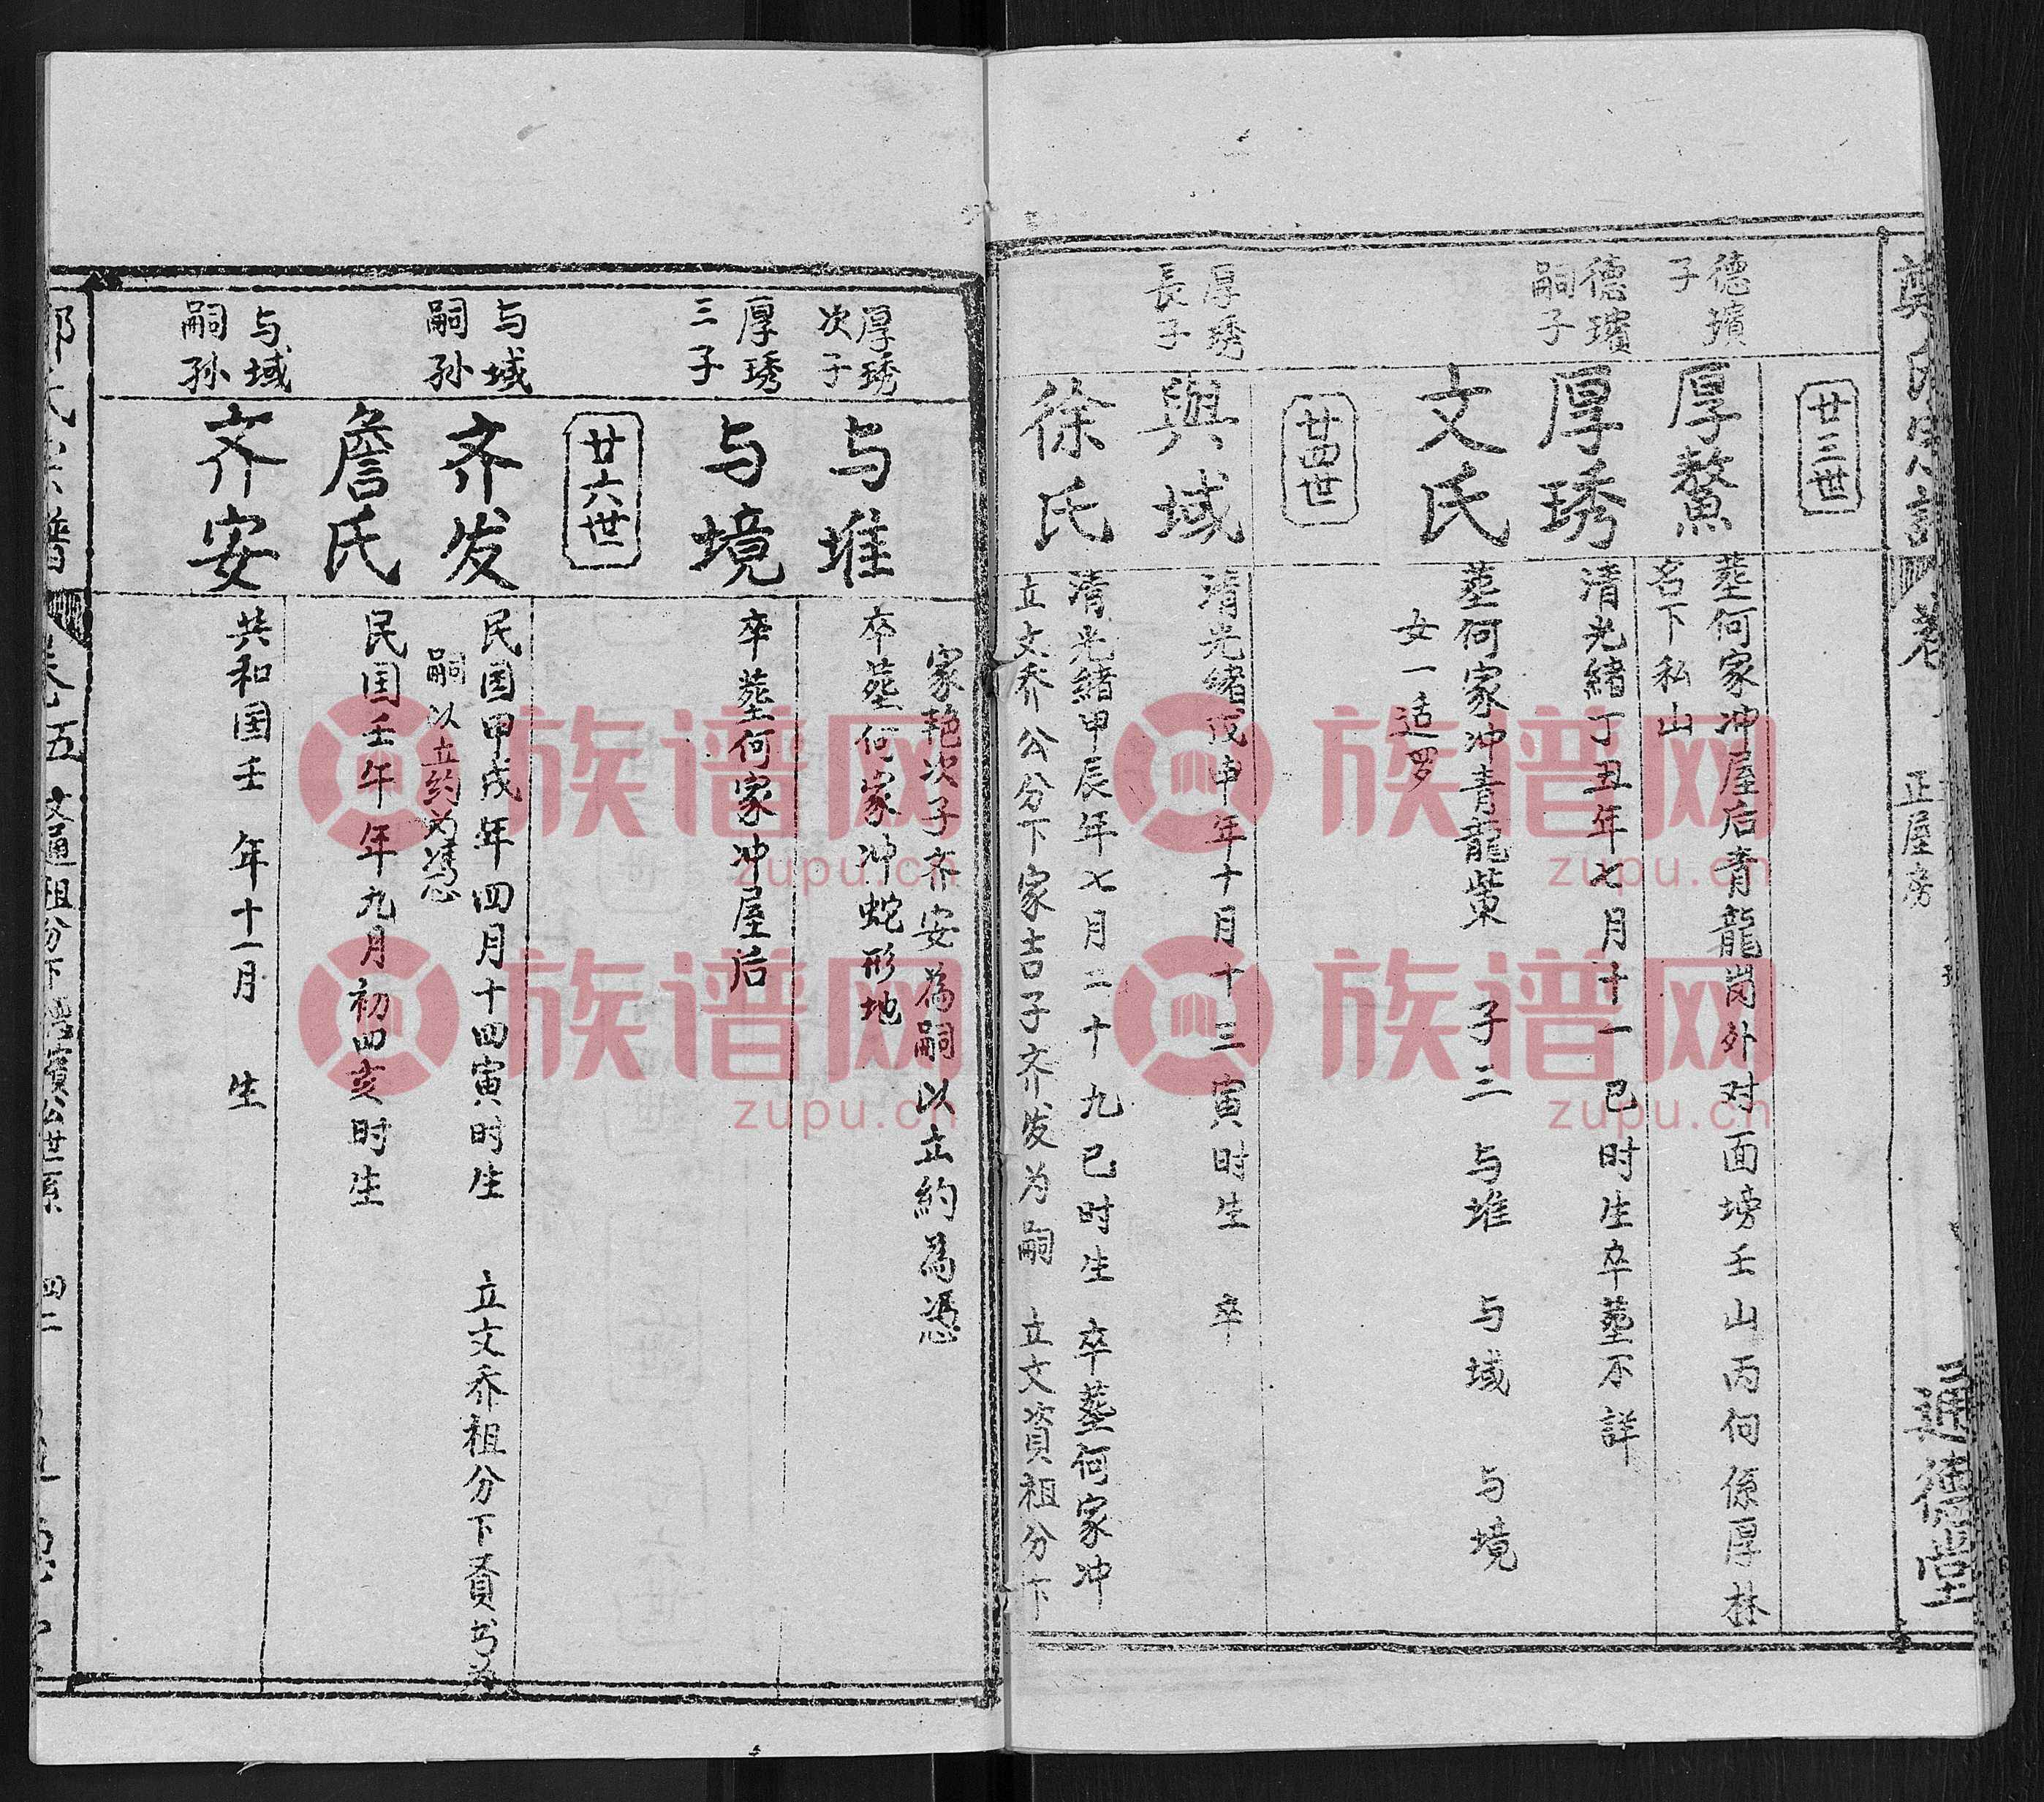 通德堂
正屋房
廿三世
德璸
子
厚鰲
塟何家冲屋后青龍崗外对面塝壬山丙向係厚林
名下私山
德璸
嗣子
厚琇
清光緒丁丑年七月十一巳时生卒塟不詳
文氏
塟何家冲青龍㭰 子三 与堆 与域 与境
女一适罗
廿四世
厚琇
長子
與域
清光緒戊申年十月十三寅时生 卒
徐氏
清光緒甲辰年七月二十九巳时生 卒塟何家冲
立文乔公分下家吉子齐发为嗣 立文資祖分下
家艳次子齐安為嗣以立約為憑
厚琇
次子
与堆
卒塟何家冲蛇形地
厚琇
三子
与境
卒塟何家冲屋后
廿六世
与域
嗣孙
齐发
民国甲戌年四月十四寅时生 立文乔祖分下
嗣以立約为憑
詹氏
民国壬午年九月初四亥时生
与域
嗣孙
齐安
共和国壬 年十一月 生
卷五
文通祖分下德璸公世系
四二
族谱网
zupu.cn
族谱网
zupu.cn
族谱网
zupu.cn
族谱网
zupu.cn